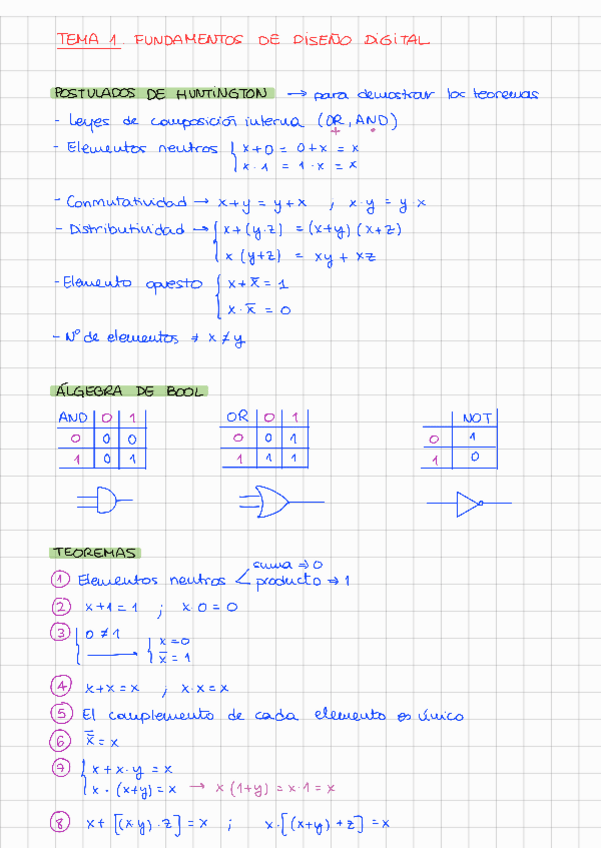 TEMA 1. FUNDAMENTOS DE DISEÑO DIGITAL
POSTULADOS DE HUNTINGTON → para demostrar los teoremas
- Leyes de composición interna (OR, AND)
+ ·
- Elementos neutros { x + 0 = 0 + x = x
x · 1 = 1 · x = x
- Conmutatividad → x + y = y + x , x · y = y x
- Distributividad → { x + (y · z) = (x+y) (x+z)
x (y+z) = xy + xz
- Elemento opuesto { x + x̅ = 1
x · x̅ = 0
- Nº de elementos ≠ x ≠ y
ÁLGEBRA DE BOOL
AND 0 1
0 0 0
1 0 1
OR 0 1
0 0 1
1 1 1
NOT
0 1
1 0
TEOREMAS
① Elementos neutros < suma ⇒ 0
producto ⇒ 1
② x + 1 = 1 ; x 0 = 0
③ { 0 ≠ 1
→ { x = 0
x̅ = 1
④ x + x = x ; x · x = x
⑤ El complemento de cada elemento es único
⑥ x̿ = x
⑦ { x + x · y = x
x · (x+y) = x → x (1+y) = x · 1 = x
⑧ x + [(x·y) · z] = x ; x · [(x+y) + z] = x